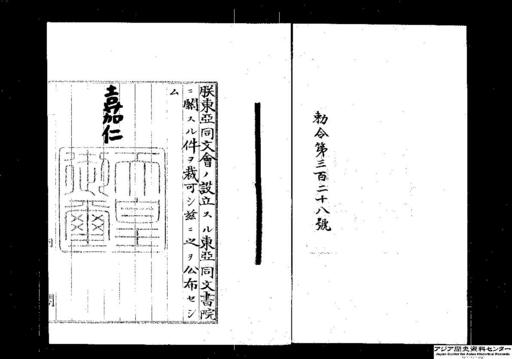 勅令第三百二十八號
朕東亞同文會ノ設立スル東亞同文書院
ニ關スル件ヲ裁可シ茲ニ之ヲ公布セシ
ム
嘉仁
天皇
御璽
アジア歴史資料センター
Japan Center for Asian Historical Records